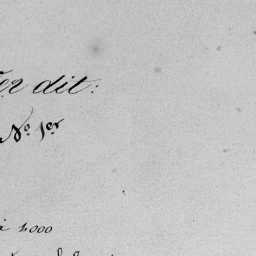 er dit:
No 1er
à 1,000